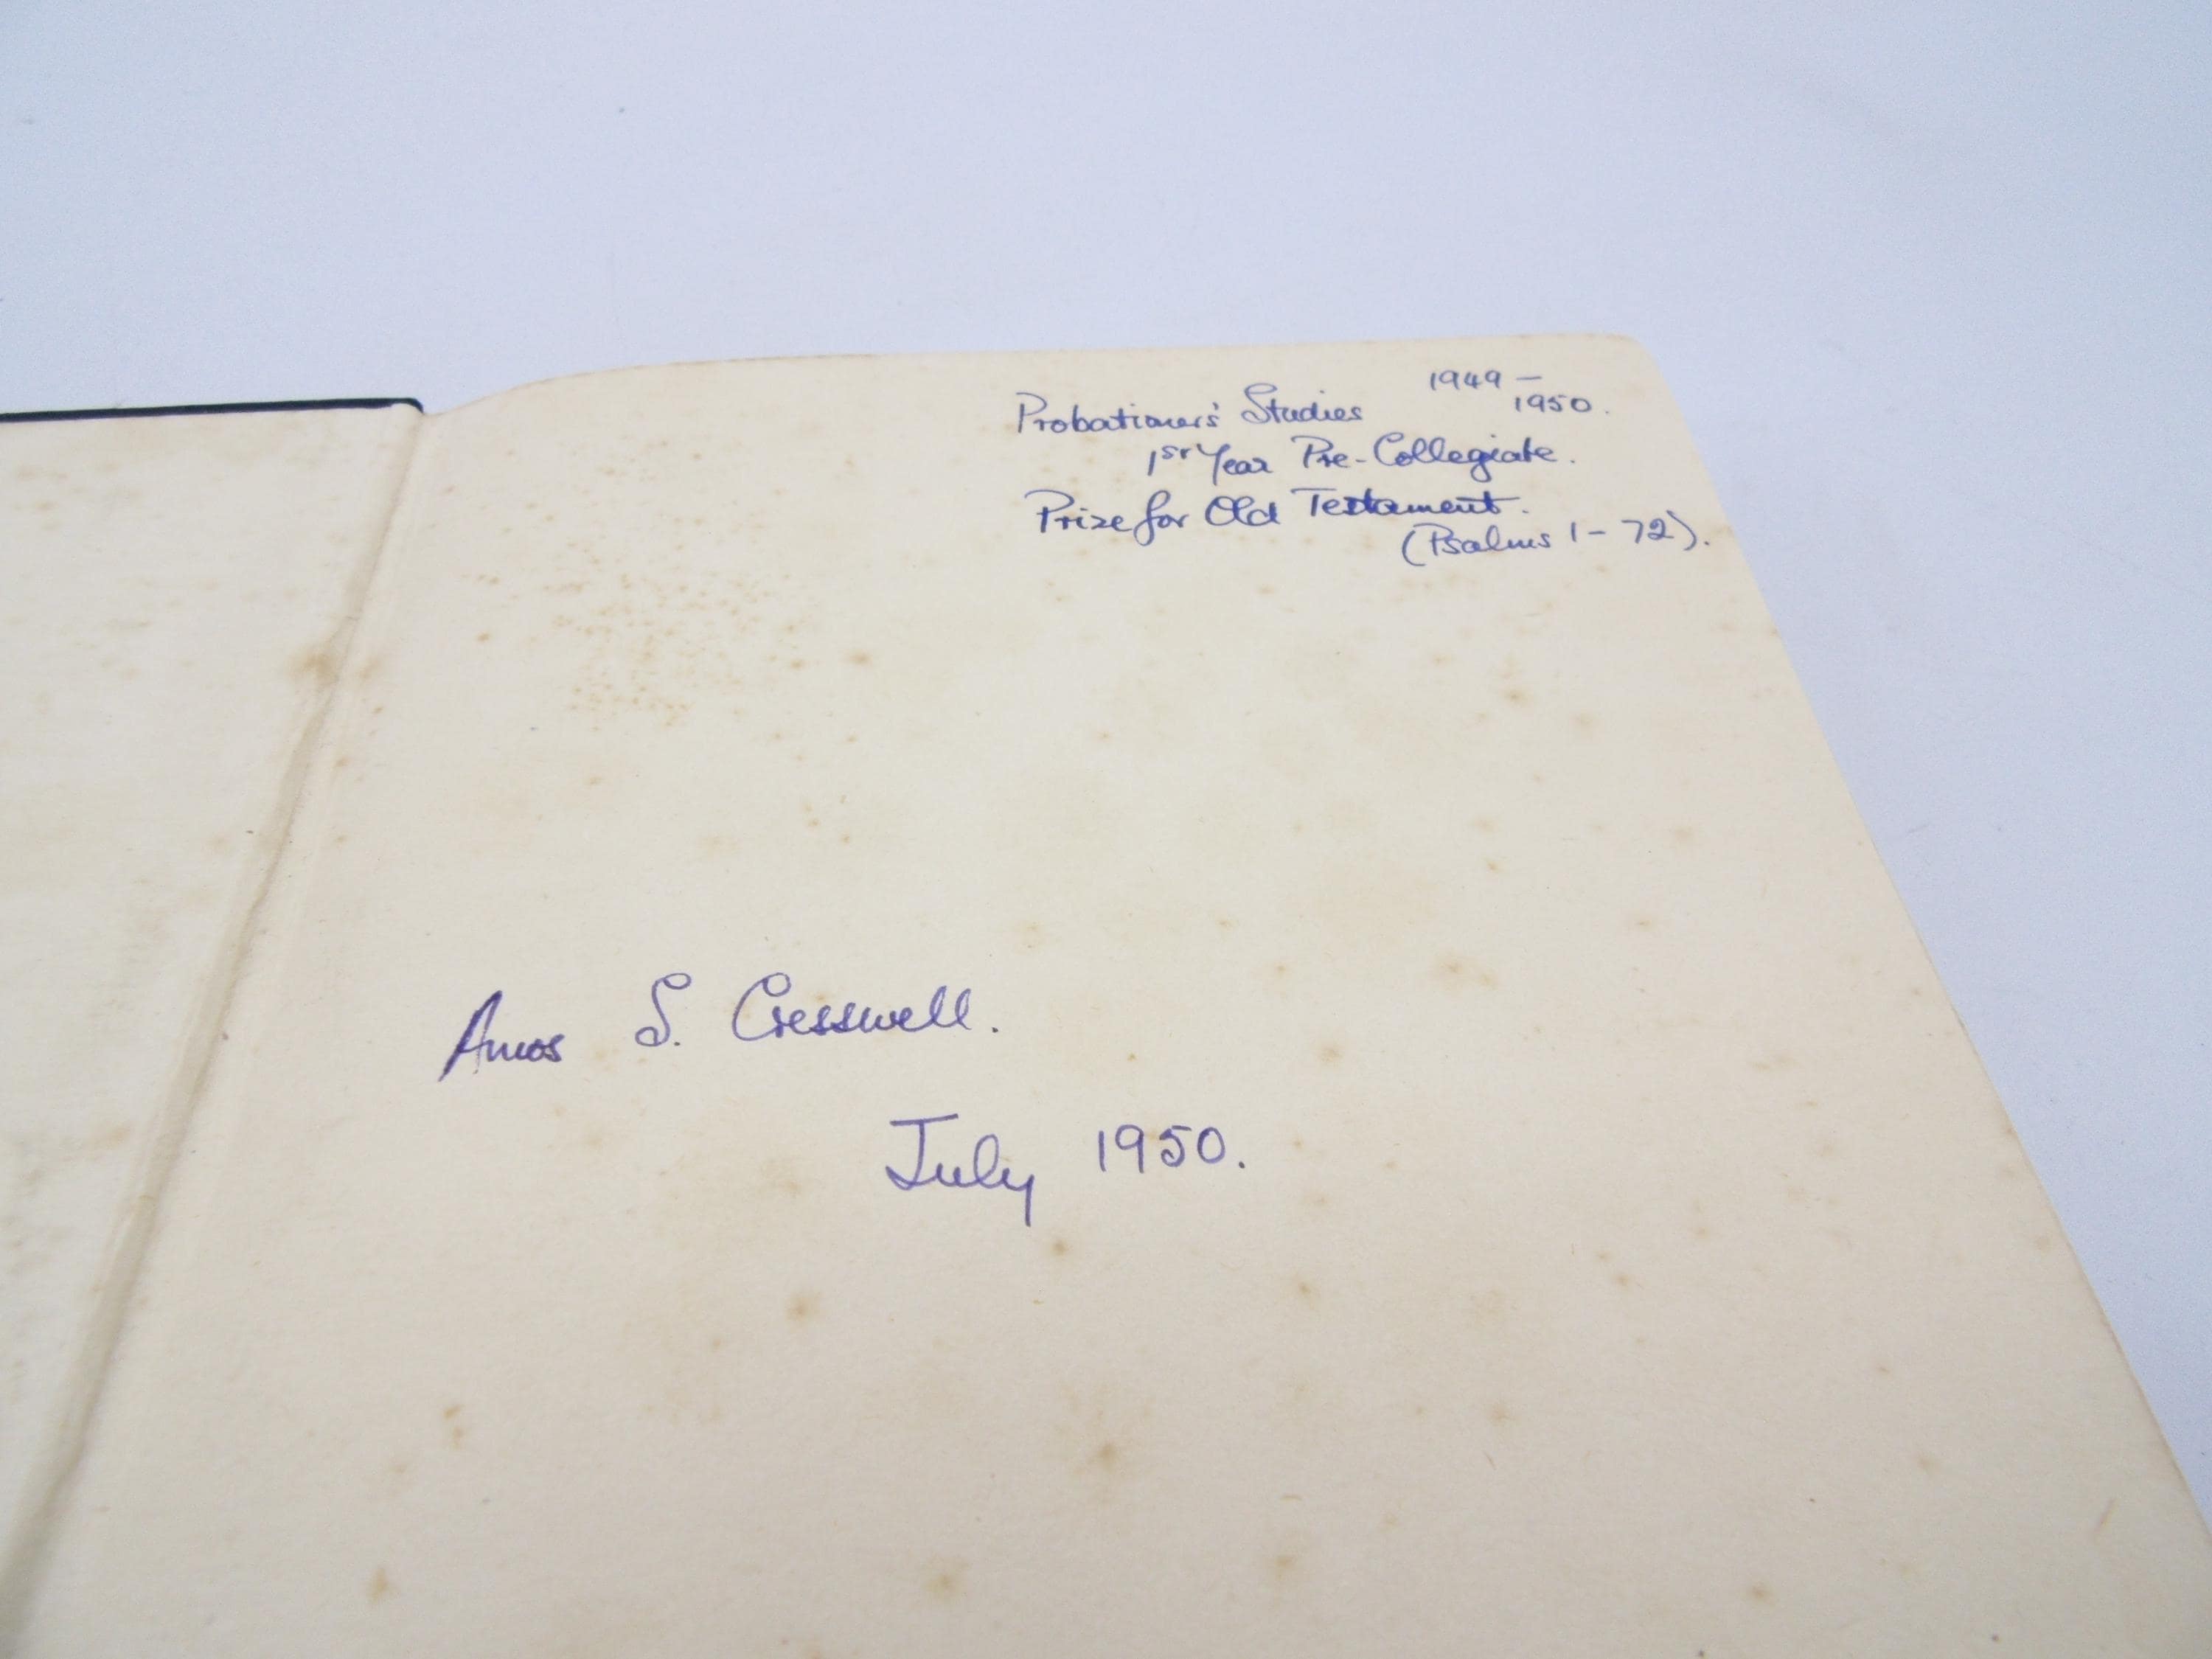 Probationers' Studies 1949 –
1950.
1st Year Pre-Collegiate.
Prize for Old Testament.
(Psalms 1 – 72).
Amos S. Cresswell.
July 1950.